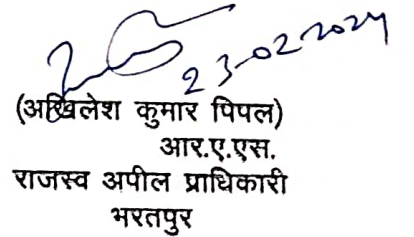 23-02-2024
(अखिलेश कुमार पिपल)
आर.ए.एस.
राजस्व अपील प्राधिकारी
भरतपुर